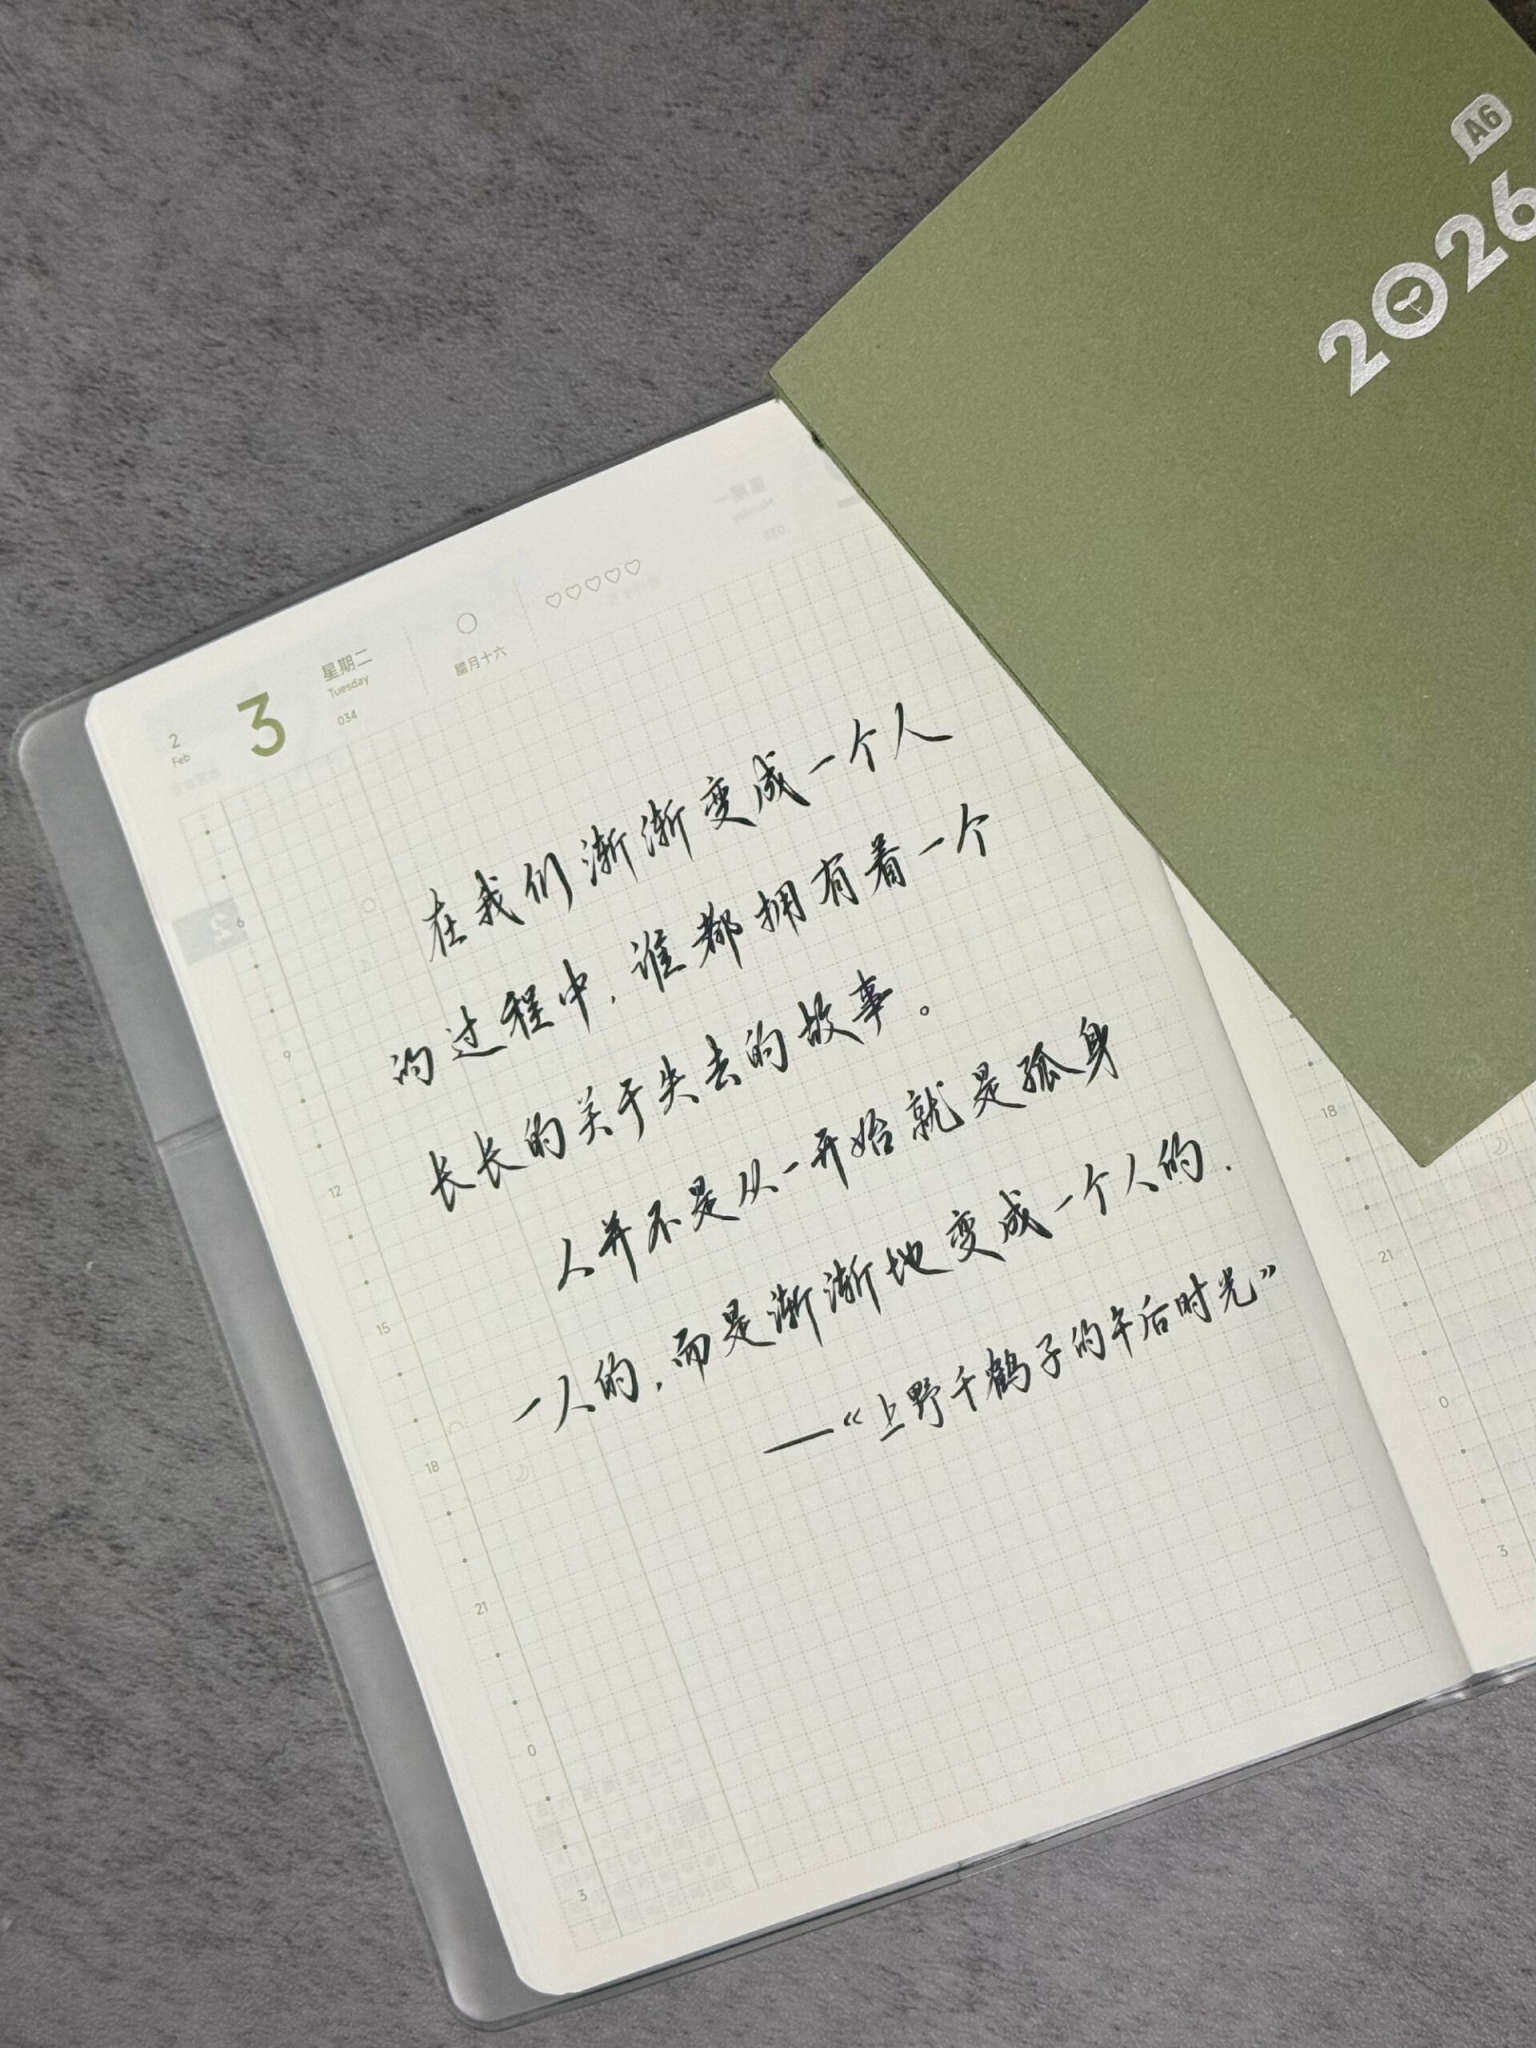 A6
2026
2
Feb
3
星期二
Tuesday
034
腊月十六
在我们渐渐变成一个人
的过程中，谁都拥有着一个
长长的关于失去的故事。
人并不是从一开始就是孤身
一人的，而是渐渐地变成一个人的.
——“上野千鹤子的午后时光”
6
9
12
15
18
21
0
3
18
21
0
3